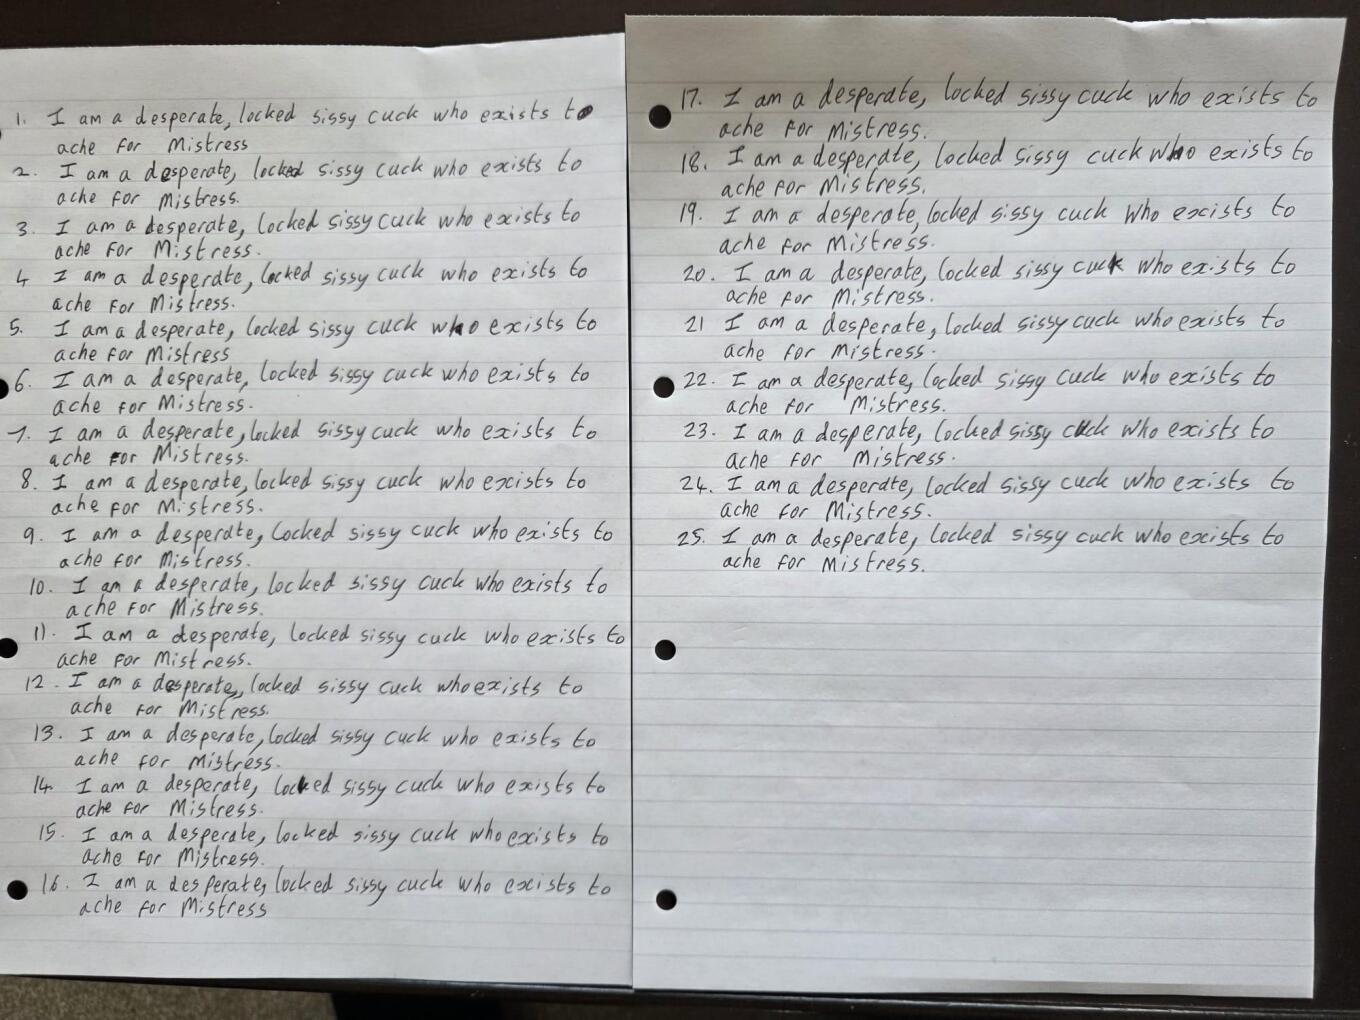 1. I am a desperate, locked sissy cuck who exists to
ache for Mistress
2. I am a desperate, locked sissy cuck who exists to
ache for Mistress.
3. I am a desperate, locked sissy cuck who exists to
ache for Mistress.
4 I am a desperate, locked sissy cuck who exists to
ache for Mistress.
5. I am a desperate, locked sissy cuck who exists to
ache for Mistress
6. I am a desperate, locked sissy cuck who exists to
ache for Mistress.
7. I am a desperate, locked sissy cuck who exists to
ache for Mistress.
8. I am a desperate, locked sissy cuck who exists to
ache for Mistress.
9. I am a desperate, locked sissy cuck who exists to
ache for Mistress.
10. I am a desperate, locked sissy cuck who exists to
ache for Mistress.
11. I am a desperate, locked sissy cuck who exists to
ache for Mistress.
12. I am a desperate, locked sissy cuck who exists to
ache for Mistress.
13. I am a desperate, locked sissy cuck who exists to
ache for Mistress.
14. I am a desperate, locked sissy cuck who exists to
ache for Mistress.
15. I am a desperate, locked sissy cuck who exists to
ache for Mistress.
16. I am a desperate, locked sissy cuck who exists to
ache for Mistress
17. I am a desperate, locked sissy cuck who exists to
ache for Mistress.
18. I am a desperate, locked sissy cuck who exists to
ache for Mistress.
19. I am a desperate, locked sissy cuck who exists to
ache for Mistress.
20. I am a desperate, locked sissy cuck who exists to
ache for Mistress.
21 I am a desperate, locked sissy cuck who exists to
ache for Mistress.
22. I am a desperate, locked sissy cuck who exists to
ache for Mistress.
23. I am a desperate, locked sissy cuck who exists to
ache for Mistress.
24. I am a desperate, locked sissy cuck who exists to
ache for Mistress.
25. I am a desperate, locked sissy cuck who exists to
ache for Mistress.